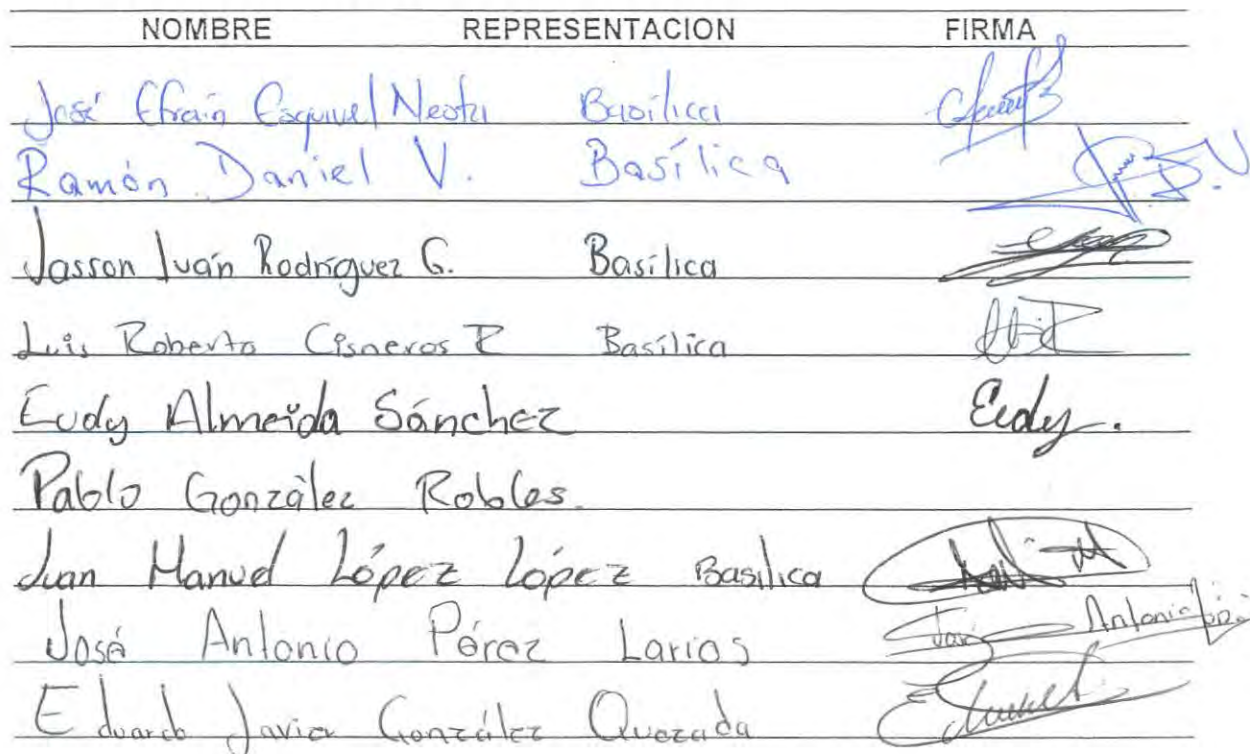 NOMBRE REPRESENTACION FIRMA
José Efraín Esquivel Basílica
Ramón Daniel V. Basílica D.V
Jasson Iván Rodríguez G. Basílica
Luis Roberto Cisneros R Basílica
Eudy Almeida Sánchez Eudy.
Pablo González Robles.
Juan Manuel López López Basilica
José Antonio Pérez Larios José Antonio
Eduardo Javier González Quezada